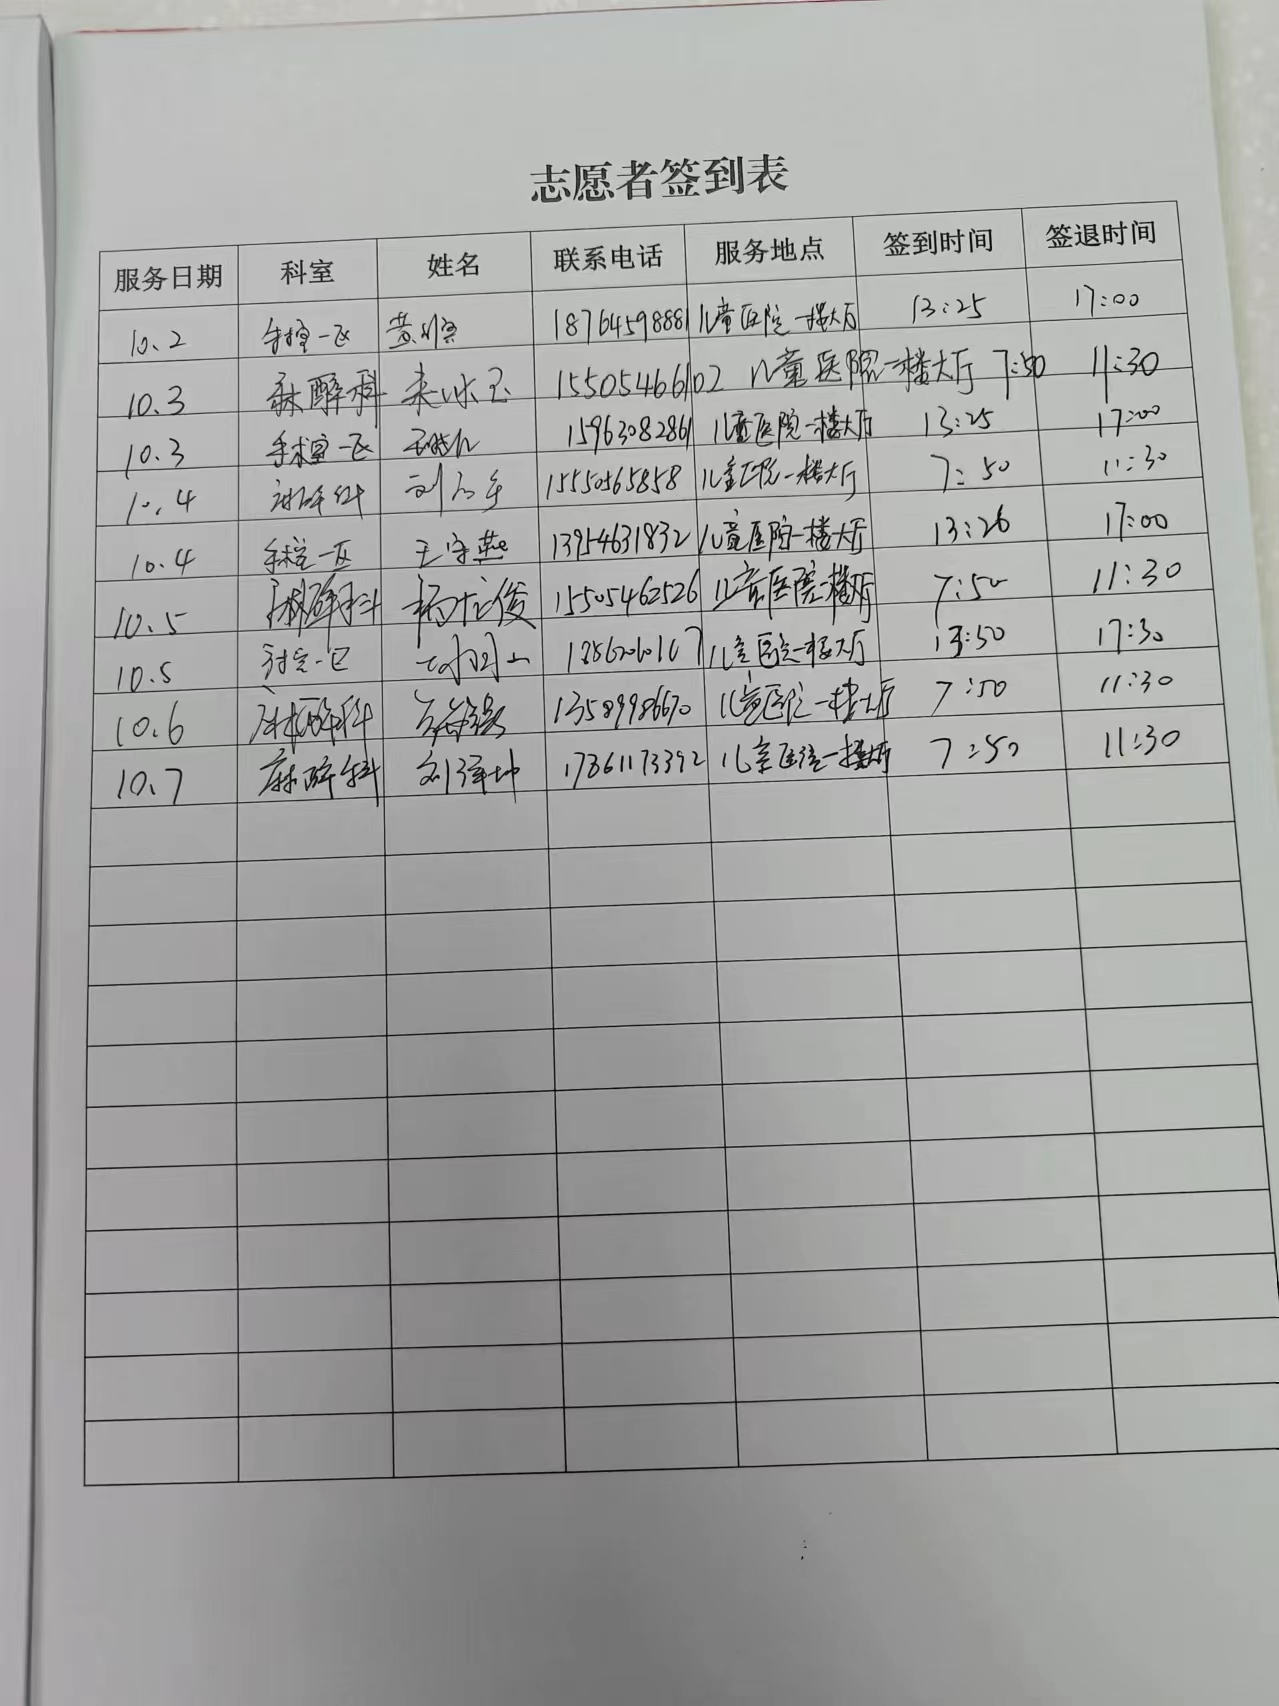 志愿者签到表
服务日期 科室 姓名 联系电话 服务地点 签到时间 签退时间
10.2 手术室一区 18764598881 儿童医院一楼大厅 13:25 17:00
10.3 麻醉科 15505466102 儿童医院一楼大厅 7:50 11:30
10.3 手术室一区 15963082861 儿童医院一楼大厅 13:25 17:00
10.4 麻醉科 15550565858 儿童医院一楼大厅 7:50 11:30
10.4 手术室一区 王守燕 13954631832 儿童医院一楼大厅 13:26 17:00
10.5 麻醉科 15505462526 儿童医院一楼大厅 7:50 11:30
10.5 手术室一区 儿童医院一楼大厅 13:50 17:30
10.6 麻醉科 13589986670 儿童医院一楼大厅 7:50 11:30
10.7 麻醉科 刘泽坤 17861173392 儿童医院一楼大厅 7:50 11:30